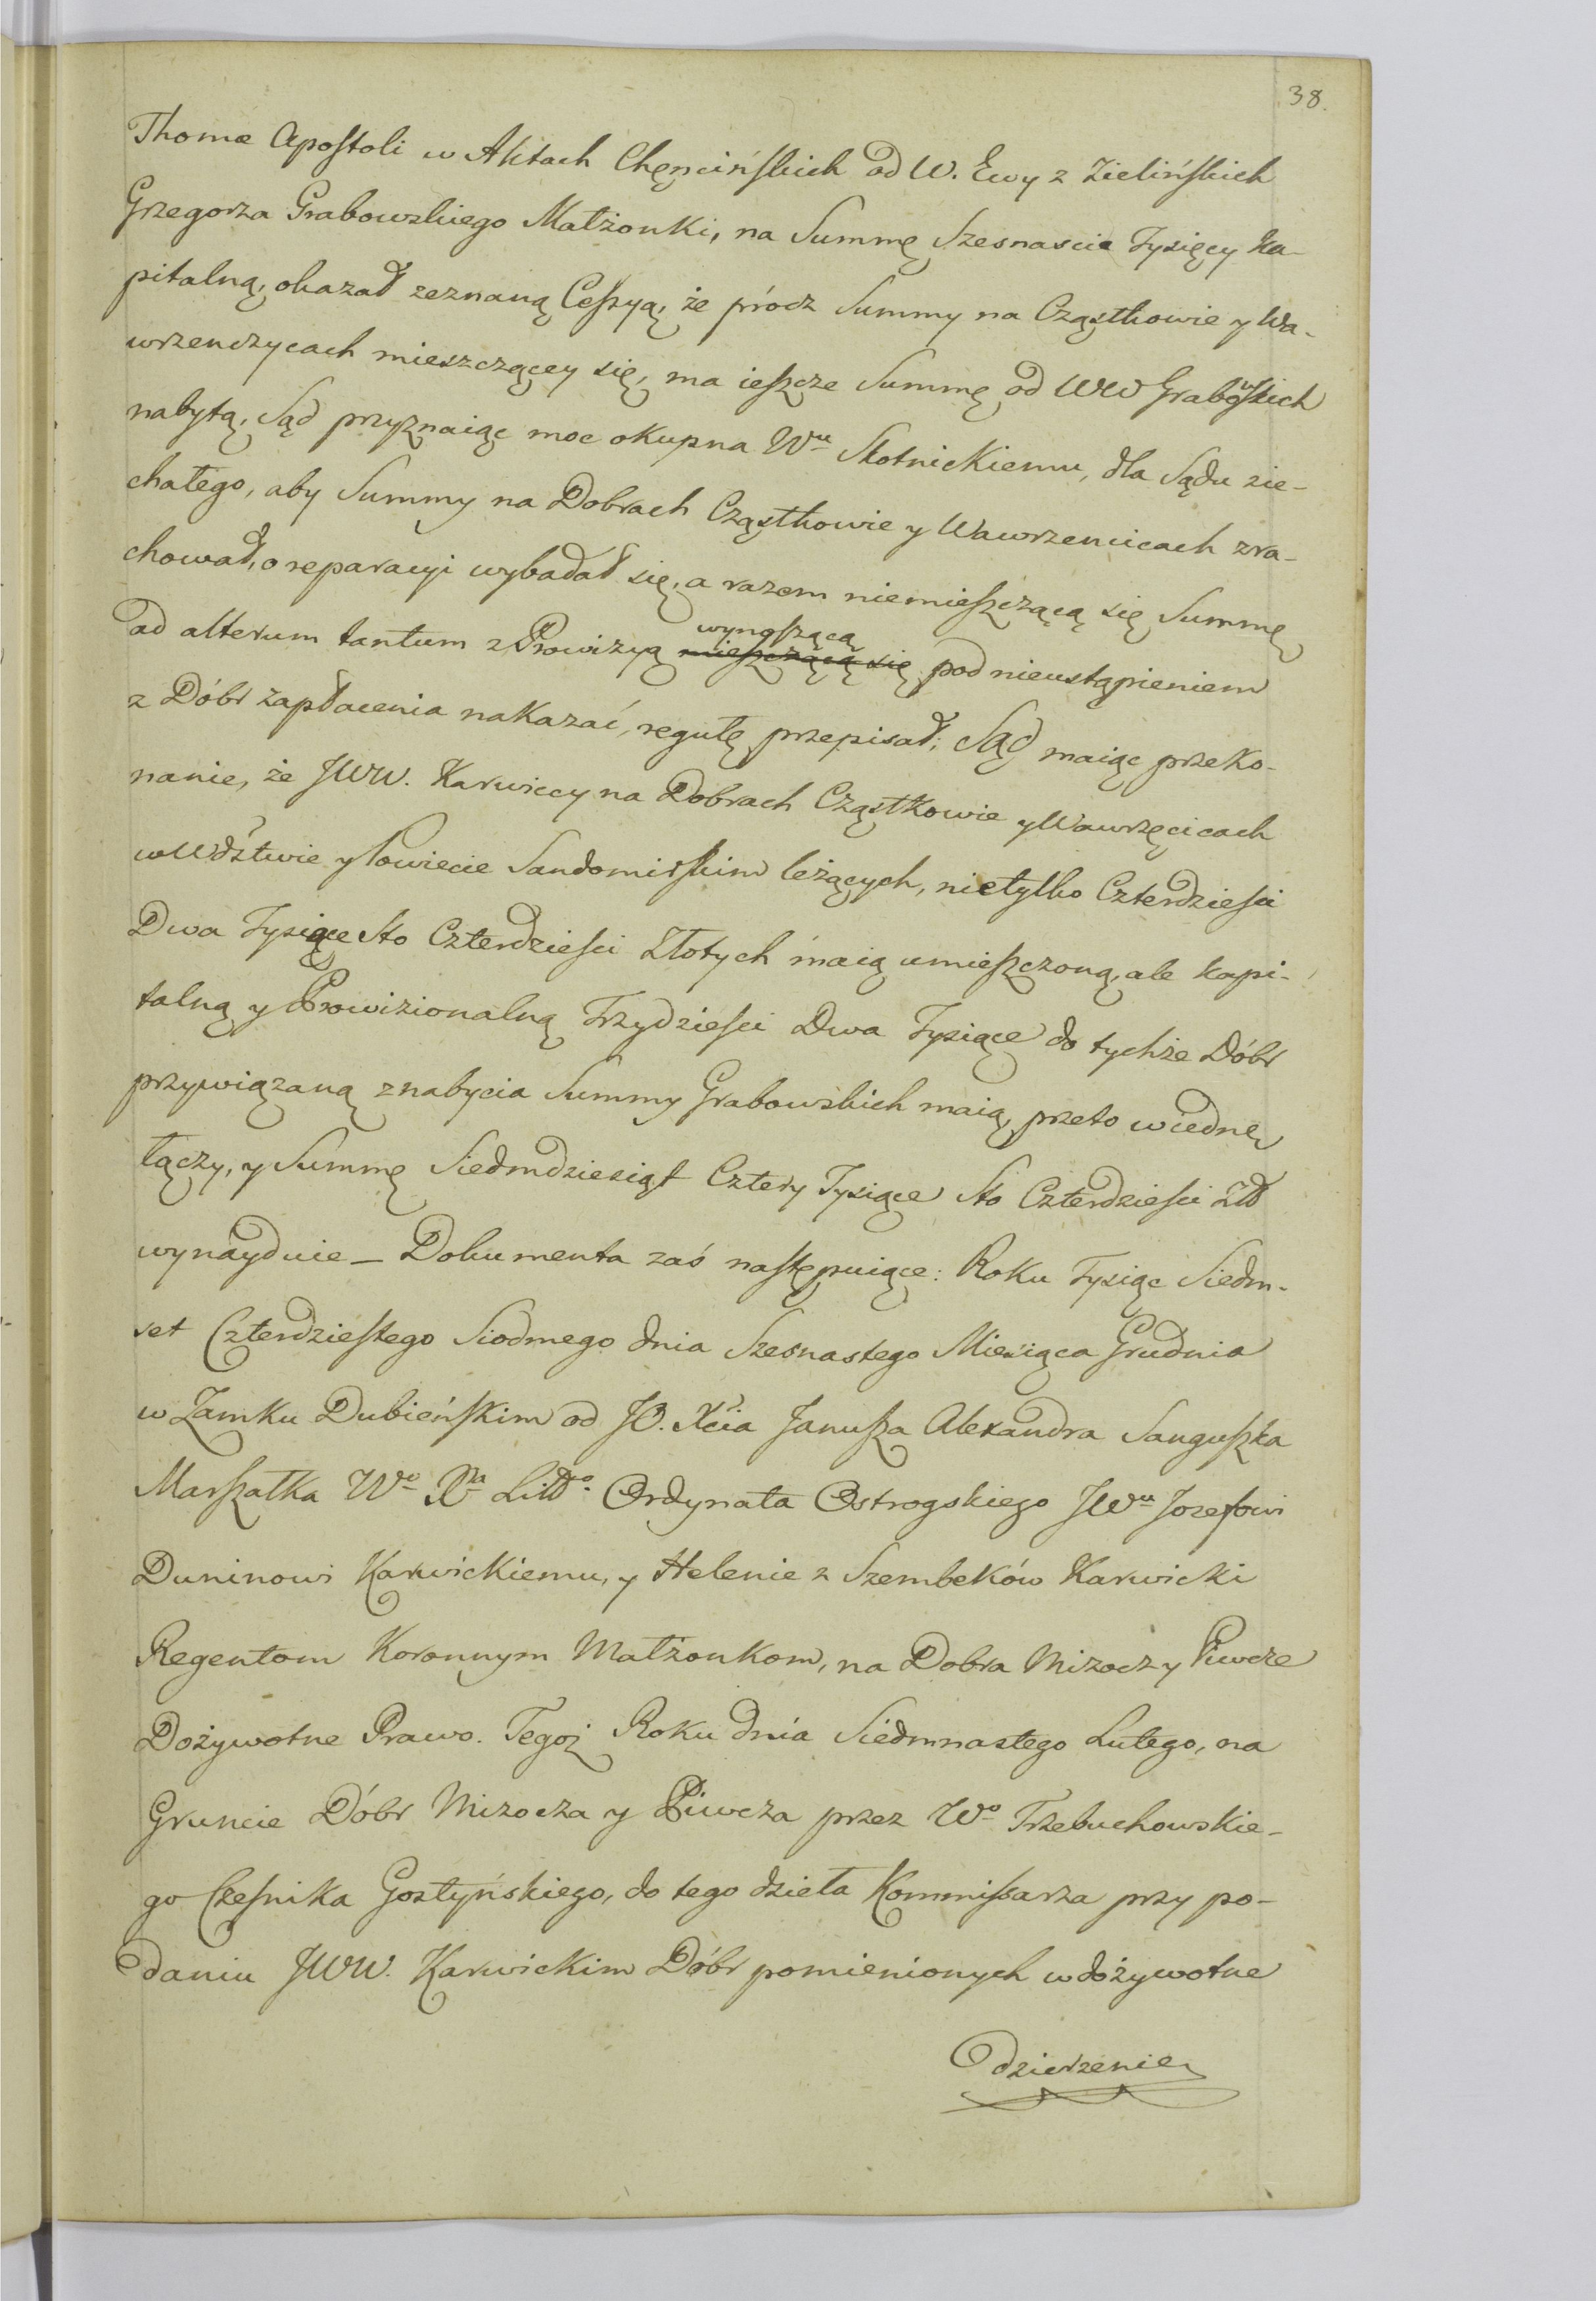 38.
Thomæ Apostoli w Aktach Chęncińskich od W. Ewy z Zielińskich
Grzegorza Grabowskiego Małżonki, na Summę Szesnascie Tysięcy Ka-
pitalną, okazał zeznaną Cessyą, że prócz Summy na Cząstkowie y Wa-
wrzenczycach mieszczącey się, ma ieszcze Summę od WW Grabowskich
nabytą, Sąd przyznaiąc moc okupna Wu Słotnickiemu, dla Sądu zie-
chałego, aby Summy na Dobrach Cząstkowie y Wawrzencicach zra-
chował, o reparacyi wybadał się, a razem niemieszczącą się Summę
ad alterum tantum z Prowizyą mieszczącą się wynoszącą pod nieustąpieniem
z Dóbr zapłacenia nakazać, regułę przepisał; Sąd maiąc przeko-
nanie, że JWW. Karwiccy na Dobrach Cząstkowie y Wawrzęcicach
w Wdztwie y Powiecie Sandomirskim leżących, nietylko Czterdziesci
Dwa Tysiące Sto Czterdziesci Złotych maią umieszczoną, ale kapi-
talną y Prowizionalną Trzydziesci Dwa Tysiące do tychże Dóbr
przywiązaną z nabycia Summy Grabowskich maią, przeto w iedne
łączy, y Summę Siedmdziesiąt Cztery Tysiące Sto Czterdziesci Złł
wynayduie – Dokumenta zaś następuiące: Roku Tysiąc Siedm-
set Czterdziestego Siodmego dnia Szesnastego Miesiąca Grudnia
w Zamku Dubieńskim od JO. Xcia Janusza Alexandra Sanguszka
Marszałka Wo Xa Litto Ordynata Ostrogskiego JWu Jozefowi
Duninowi Karwickiemu, y Helenie z Szembeków Karwicki
Regentom Koronnym Małżonkom, na Dobra Mizocz y Piwcze
Dożywotne Prawo. Tegoż Roku dnia Siedmnastego Lutego, na
Gruncie Dóbr Mizocza y Piwcza przez Wo Trzebuchowskie-
go Czesnika Gostyńskiego, do tego dzieła Kommissarza przy po-
daniu JWW. Karwickim Dóbr pomienionych w dożywotne
dzierzenie